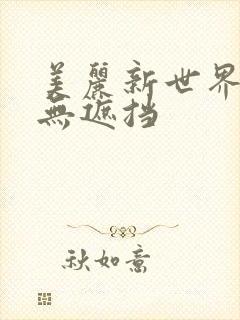 美麗新世界
無遮挡
秋如意